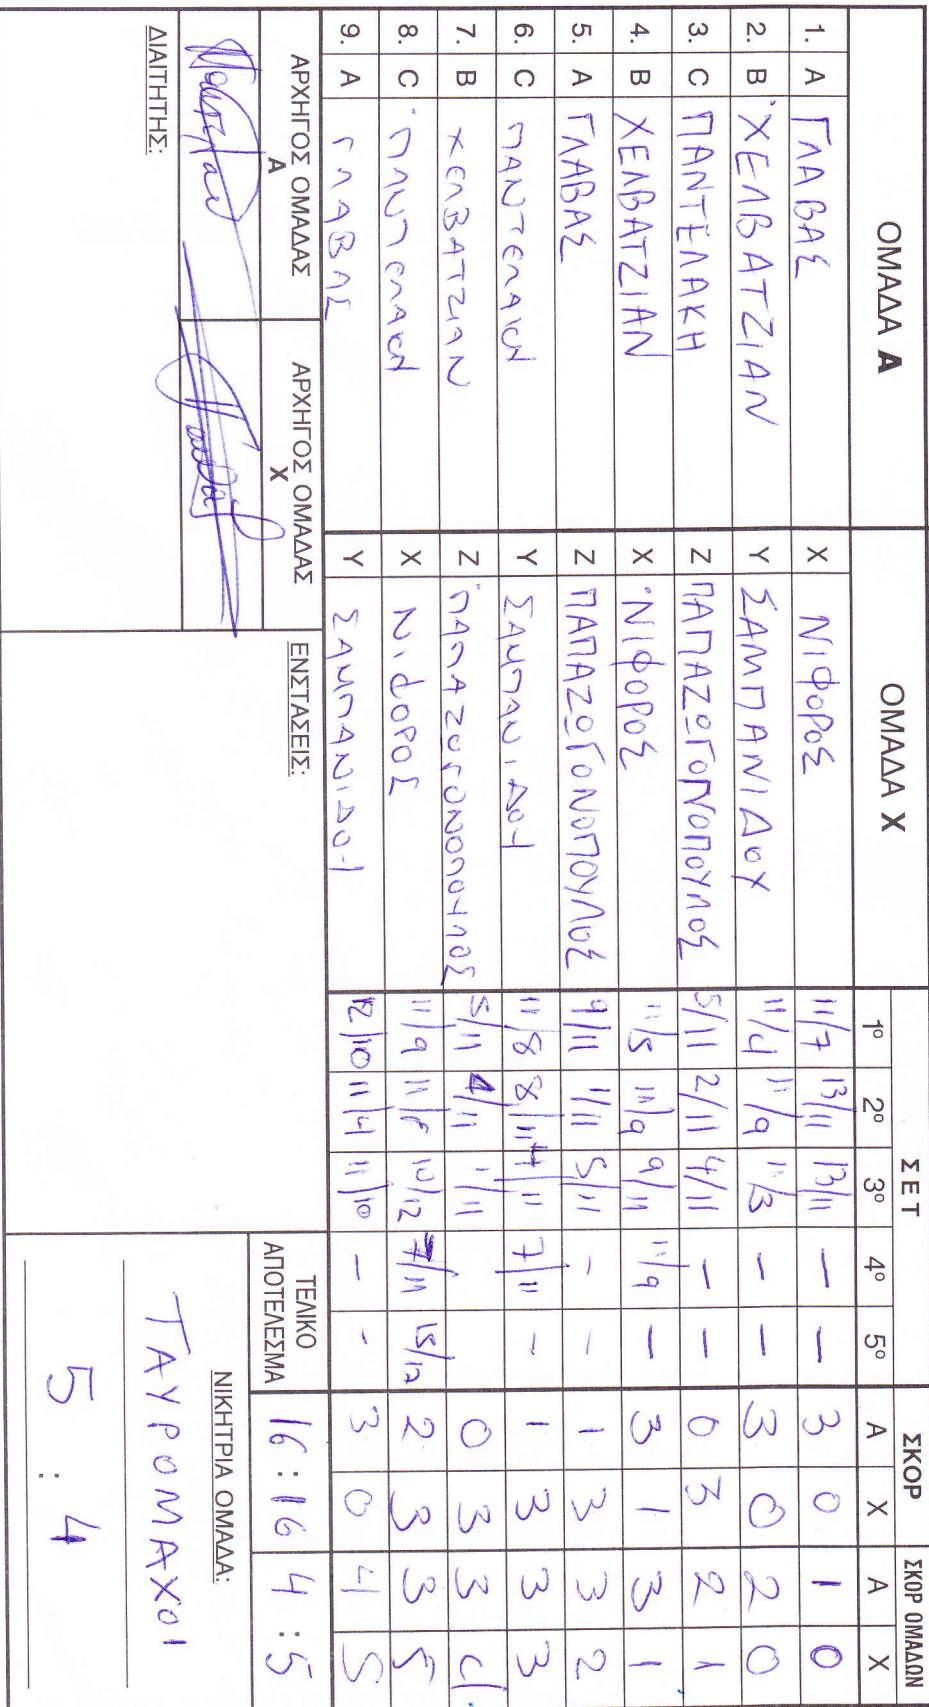 ΟΜΑΔΑ A ΟΜΑΔΑ X ΣΕΤ ΣΚΟΡ ΣΚΟΡ ΟΜΑΔΩΝ
1º 2º 3º 4º 5º A X A X
1. A ΓΛΑΒΑΣ X ΝΙΦΟΡΟΣ 11/7 13/11 13/11 — — 3 0 1 0
2. B ΧΕΛΒΑΤΖΙΑΝ Y ΣΑΜΠΑΝΙΔΟΥ 11/4 11/9 11/3 — — 3 0 2 0
3. C ΠΑΝΤΕΛΑΚΗ Z ΠΑΠΑΖΩΓΟΝΟΠΟΥΛΟΣ 5/11 2/11 4/11 — — 0 3 2 1
4. B ΧΕΛΒΑΤΖΙΑΝ X ΝΙΦΟΡΟΣ 11/5 11/9 9/11 11/9 — 3 1 3 1
5. A ΓΛΑΒΑΣ Z ΠΑΠΑΖΩΓΟΝΟΠΟΥΛΟΣ 9/11 11/11 5/11 - - 1 3 3 2
6. C ΠΑΝΤΕΛΑΚΗ Y ΣΑΜΠΑΝΙΔΟΥ 11/8 8/11 7/11 7/11 - 1 3 3 3
7. B ΧΕΛΒΑΤΖΙΑΝ Z ΠΑΠΑΖΩΓΟΝΟΠΟΥΛΟΣ 5/11 4/11 1/11 0 3 3 4
8. C ΠΑΝΤΕΛΑΚΗ X ΝΙΦΟΡΟΣ 11/9 10/12 7/11 2 3 3 5
9. A ΓΛΑΒΑΣ Y ΣΑΜΠΑΝΙΔΟΥ 12/10 11/4 11/10 - - 3 0 4 5
ΑΡΧΗΓΟΣ ΟΜΑΔΑΣ A
ΑΡΧΗΓΟΣ ΟΜΑΔΑΣ X
ΕΝΣΤΑΣΕΙΣ:
ΤΕΛΙΚΟ ΑΠΟΤΕΛΕΣΜΑ 16 : 16 4 : 5
ΔΙΑΙΤΗΤΗΣ:
ΝΙΚΗΤΡΙΑ ΟΜΑΔΑ:
ΤΑΥΡΟΜΑΧΟΙ
5 : 4